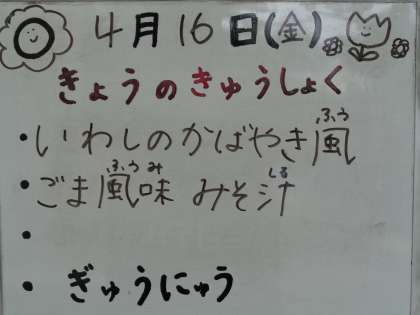 4月16日(金)
きょうのきゅうしょく
・いわしのかばやき風
・ごま風味 みそ汁
・
・ぎゅうにゅう